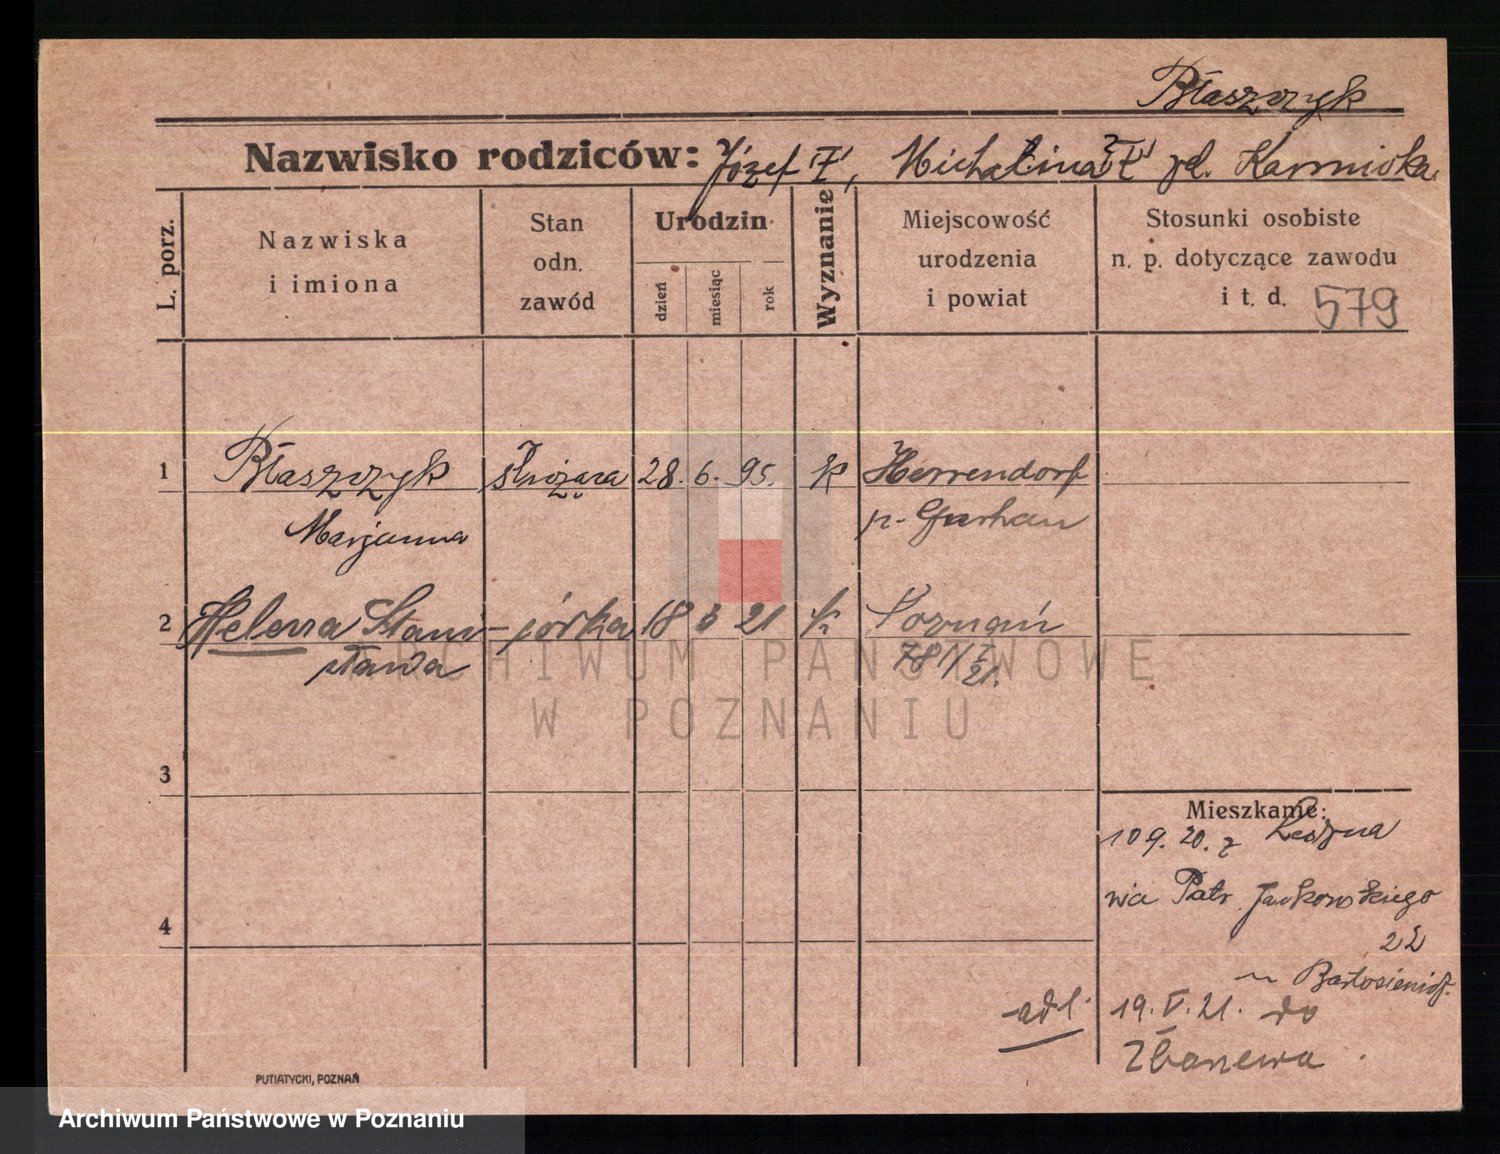 Błaszczyk
Nazwisko rodziców: Józef, Michalina
L. porz.
Nazwiska i imiona
Stan odn. zawód
Urodzin
dzień
miesiąc
rok
Wyznanie
Miejscowość urodzenia i powiat
Stosunki osobiste n. p. dotyczące zawodu i t. d.
579
1 Błaszczyk służąca 28. 6. 95. k Herrendorf
Marjanna p. Guhrau
2 Helena Stani- córka 18 3 21 k Poznań
sława 781/I 21.
ARCHIWUM PAŃSTWOWE
W POZNANIU
3
Mieszkanie:
10 9. 20. z Leszna
4
Patr. Jackowskiego
22
19. V. 21. do
PUTIATYCKI, POZNAŃ
Archiwum Państwowe w Poznaniu